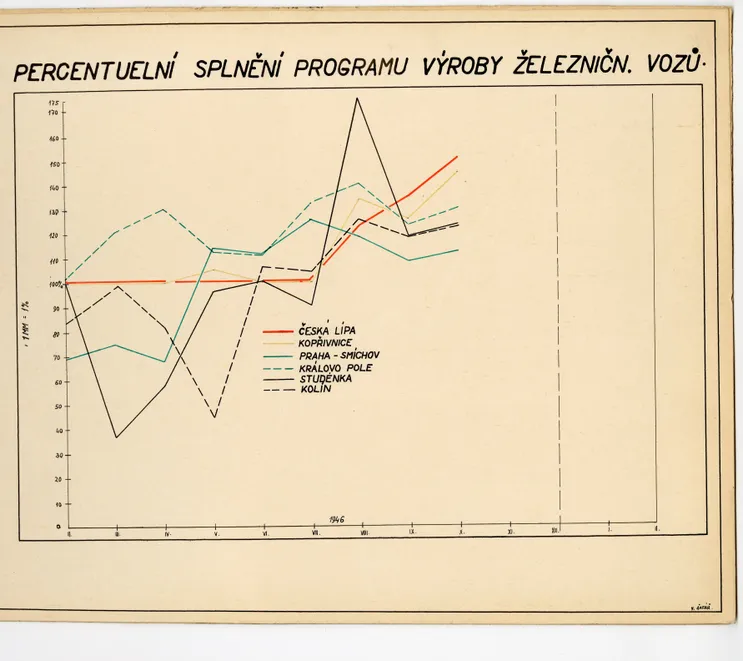 PERCENTUELNÍ SPLNĚNÍ PROGRAMU VÝROBY ŽELEZNIČN. VOZŮ.
175
170
160
150
140
130
120
110
100%
90
80
70
60
50
40
30
20
10
0
1 MM = 1%
ČESKÁ LÍPA
KOPŘIVNICE
PRAHA - SMÍCHOV
KRÁLOVO POLE
STUDÉNKA
KOLÍN
1946
II. III. IV. V. VI. VII. VIII. IX. X. XI. XII. I. II.